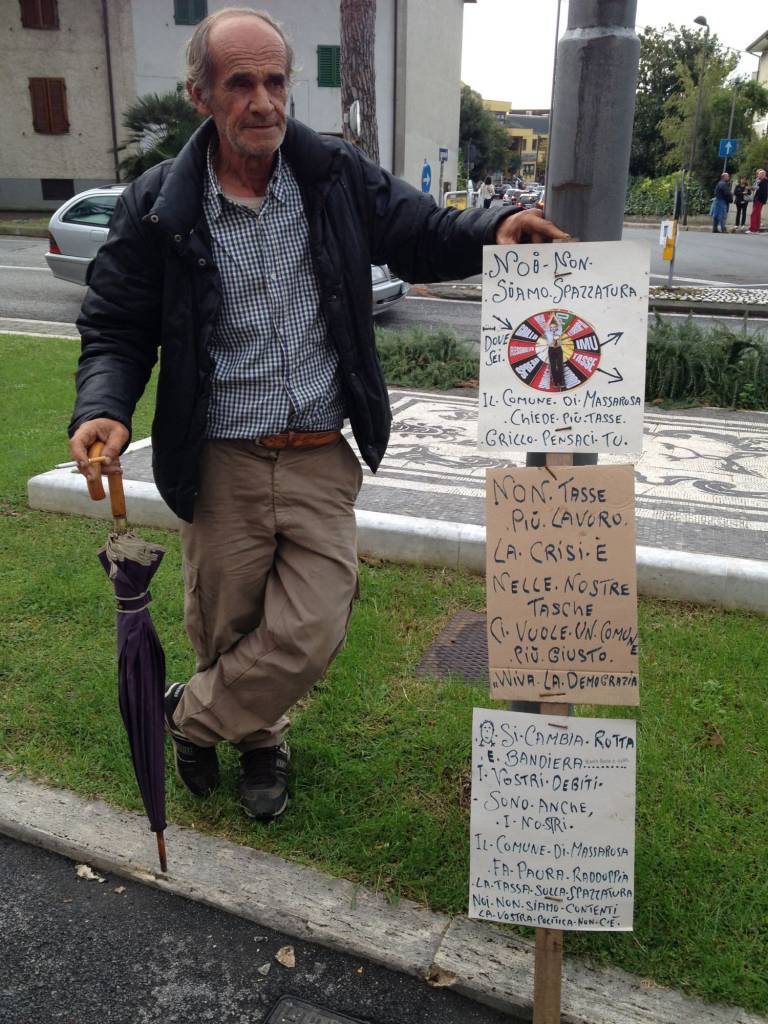 NOI·NON·
SIAMO·SPAZZATURA.
DOVE
SEI.
IMU
TASSE
IL·COMUNE·DI·MASSAROSA
CHIEDE·PIÙ·TASSE·
GRILLO·PENSACI·TU.
NON·TASSE
PIÙ·LAVORO.
LA·CRISI·È
NELLE·NOSTRE
TASCHE
CI·VUOLE·UN·COMUNE
PIÙ·GIUSTO.
WIVA·LA·DEMOGRAZIA
SI·CAMBIA·ROTTA
E·BANDIERA
I·VOSTRI·DEBITI·
SONO·ANCHE,
I·NOSTRI·
IL·COMUNE·DI·MASSAROSA
FA·PAURA·RADDOPPIA
LA·TASSA·SULLA·SPAZZATURA
NOI·NON·SIAMO·CONTENTI
LA·VOSTRA·POLITICA·NON·C'È·